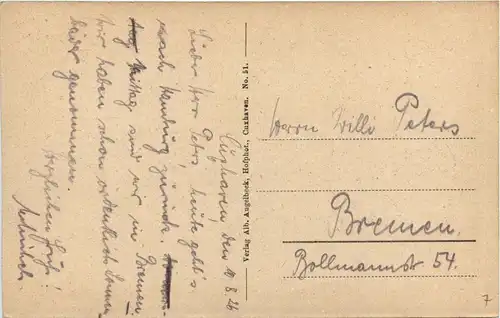 Cuxhaven, den 10.8.26
Lieber Herr Peters, heute geht's
nach Hamburg zurück.
Mittag sind wir in Bremen.
Wir haben schon ordentlich Sonnen-
bäder genommen.
Herzlichen Gruß!
Verlag Alb. Augelbeck, Hofphot., Cuxhaven. No. 51.
Herrn Willi Peters
Bremen.
Bollmannstr 54.
7